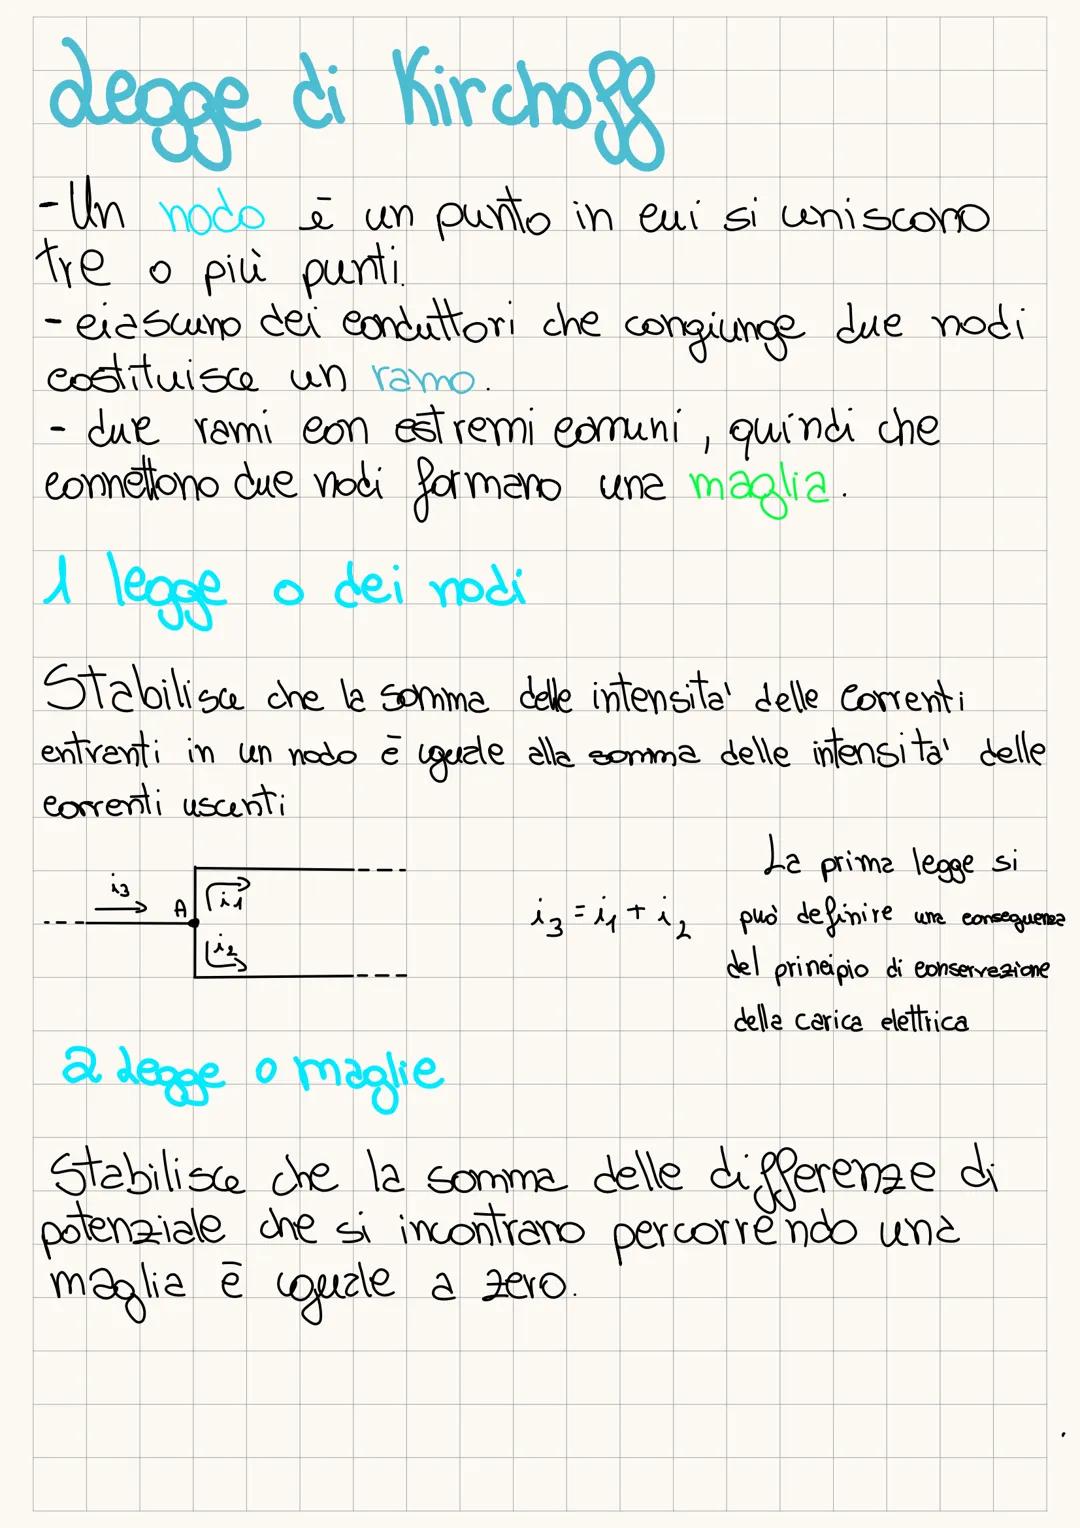 Legge di Kirchoff
- Un nodo è un punto in cui si uniscono
tre o più punti.
- ciascuno dei conduttori che congiunge due nodi
costituisce un ramo.
- due rami con estremi comuni, quindi che
connettono due nodi formano una maglia.
1 legge o dei nodi
Stabilisce che la somma delle intensita' delle correnti
entranti in un nodo è uguale alla somma delle intensita' delle
correnti uscenti
i3
A
i1
i2
i3 = i1 + i2
La prima legge si
può definire una conseguenza
del principio di conservazione
della carica elettrica
2 Legge o maglie
Stabilisce che la somma delle differenze di
potenziale che si incontrano percorrendo una
maglia è uguale a zero.